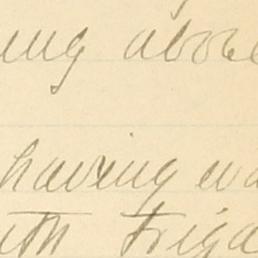 ing above
having eva
ith Friga